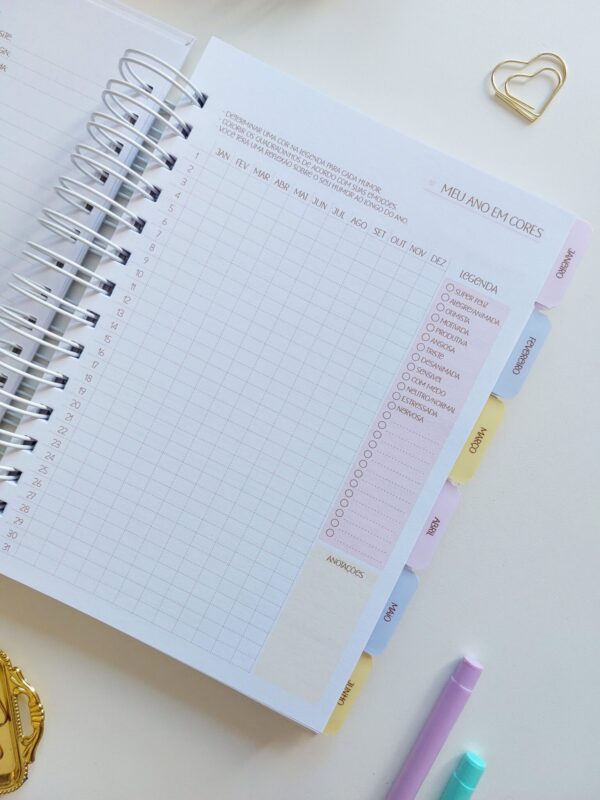 MEU ANO EM CORES
- DETERMINAR UMA COR NA LEGENDA PARA CADA HUMOR.
- COLORIR OS QUADRADINHOS DE ACORDO COM SUAS EMOÇÕES.
VOCÊ TERÁ UMA REFLEXÃO SOBRE O SEU HUMOR AO LONGO DO ANO.
JAN FEV MAR ABR MAI JUN JUL AGO SET OUT NOV DEZ
1
2
3
4
5
6
7
8
9
10
11
12
13
14
15
16
17
18
19
20
21
22
23
24
25
26
27
28
29
30
31
LEGENDA
SUPER FELIZ
ALEGRE/ANIMADA
OTIMISTA
MOTIVADA
PRODUTIVA
ANSIOSA
TRISTE
DESANIMADA
SENSÍVEL
COM MEDO
NEUTRO/NORMAL
ESTRESSADA
NERVOSA
ANOTAÇÕES
JANEIRO
FEVEREIRO
MARÇO
ABRIL
MAIO
JUNHO